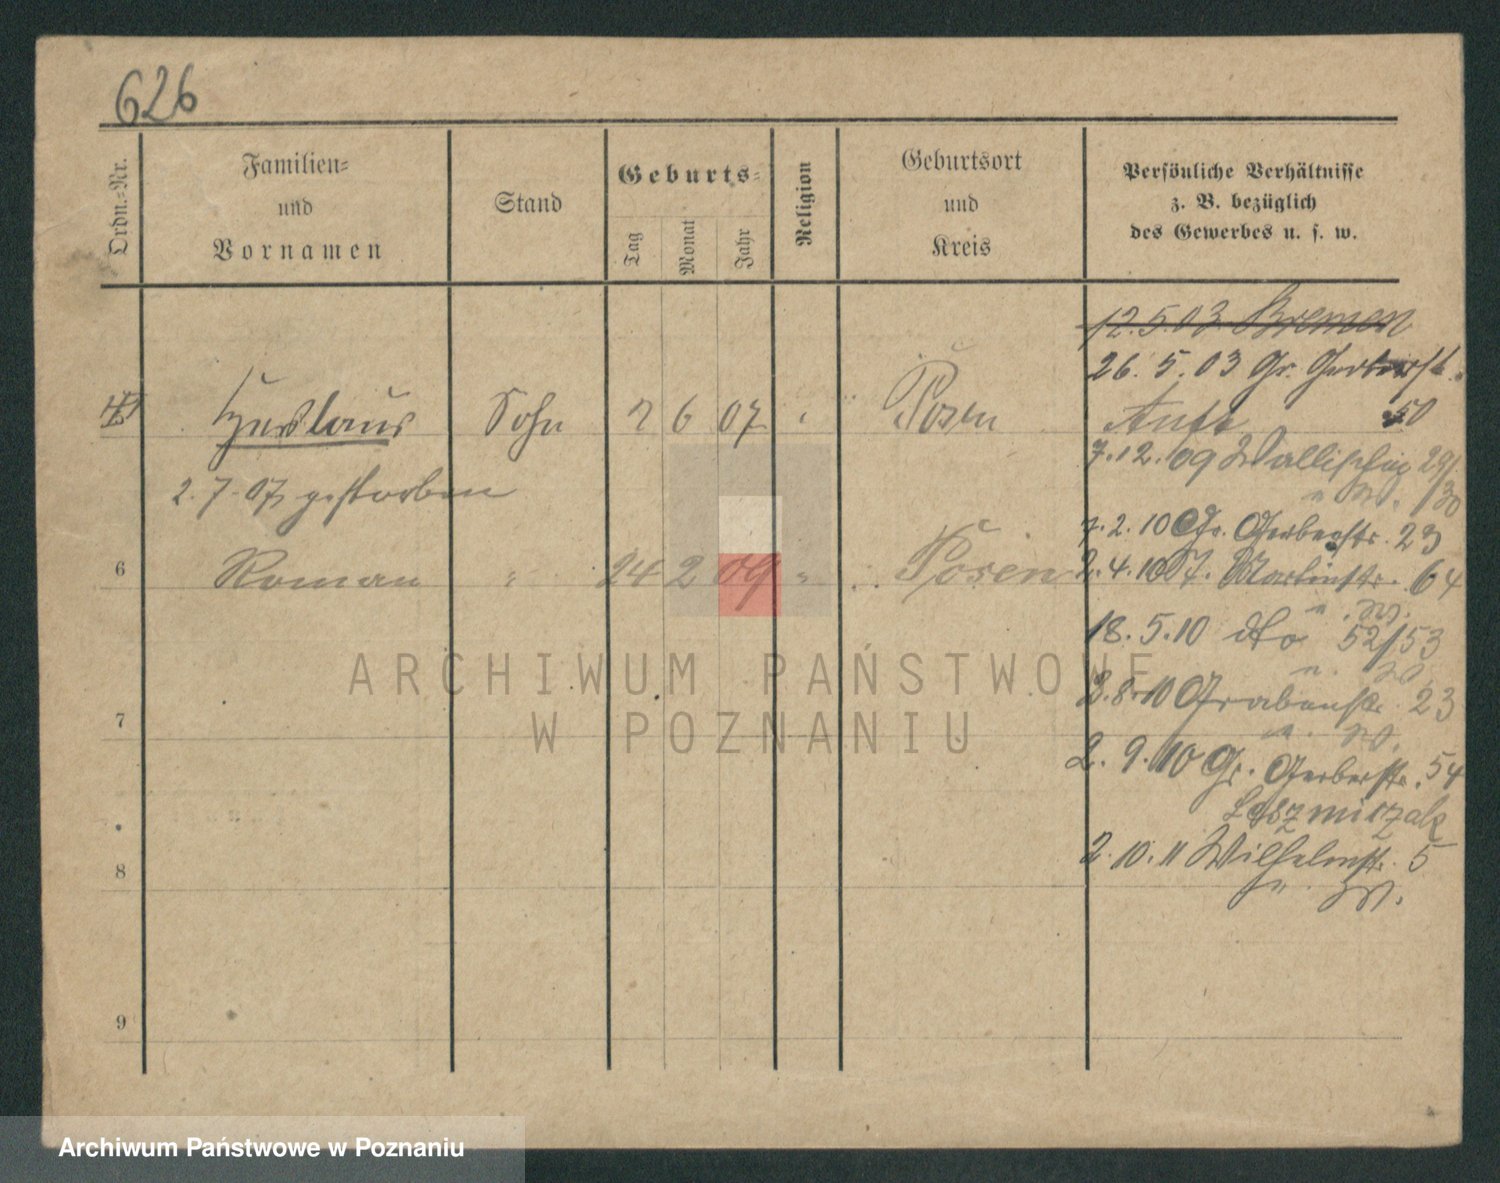 626
Ordn.-Nr.
Familien-
und
Vornamen
Stand
Geburts-
Tag
Monat
Jahr
Religion
Geburtsort
und
Kreis
Persönliche Verhältnisse
z. B. bezüglich
des Gewerbes u. s. w.
12.5.03 Bremen
26.5.03 Gr. Gerberstr.
50
Sohn 2 6 07 Posen
7.12.09 Wallischei 29/
u. W. 130
2.7.07 gestorben
7.2.10 Gr. Gerberstr. 23
6 Roman " 24 2 09 " Posen
2.4.10 St. Martinstr. 64
u. W.
18.5.10 dto 52/53
u. W.
2.8.10 Grabenstr. 23
u. W.
7
2.9.10 Gr. Gerberstr. 54
2.10.11 Wilhelmstr. 5
u. W.
8
9
ARCHIWUM PAŃSTWOWE
W POZNANIU
Archiwum Państwowe w Poznaniu